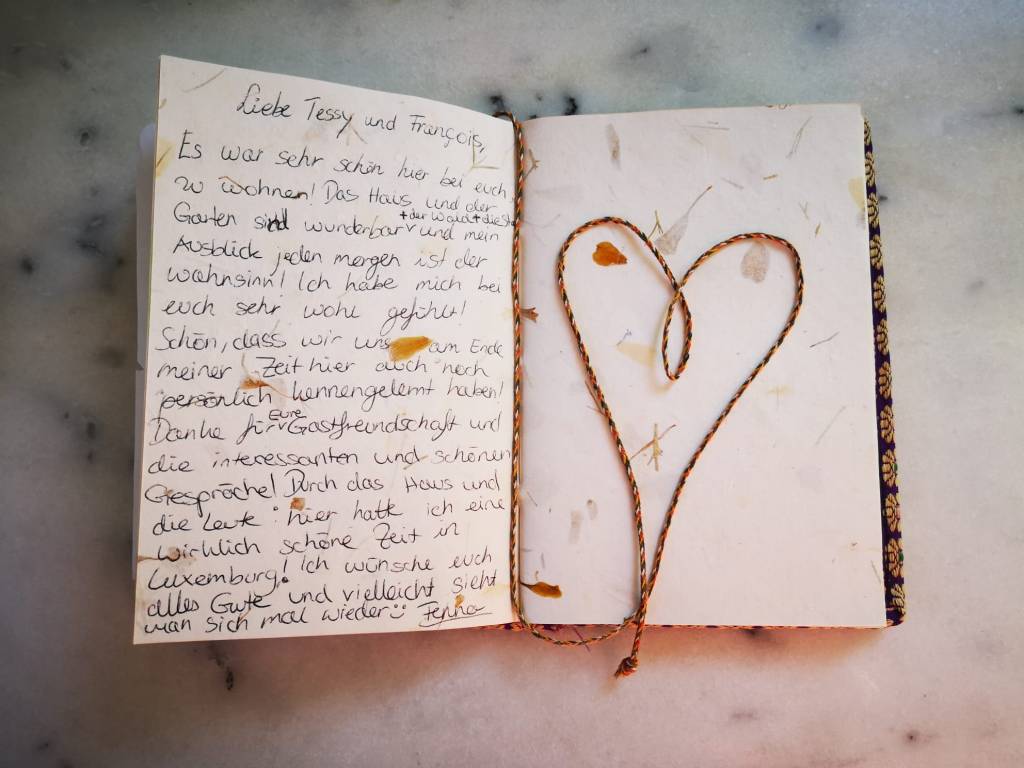 Liebe Tessy und François,
Es war sehr schön hier bei euch
zu wohnen! Das Haus und der
+ der Wald + die
Garten sind wunderbar und mein
Ausblick jeden morgen ist der
wahnsinn! Ich habe mich bei
euch sehr wohl gefühlt!
Schön, dass wir uns am Ende
meiner Zeit hier auch noch
persönlich kennengelernt haben!
Eure
Danke für Gastfreundschaft und
die interessanten und schönen
Gespräche! Durch das Haus und
die Leute hier hatte ich eine
wirklich schöne Zeit in
Luxemburg! Ich wünsche euch
alles Gute und vielleicht sieht
man sich mal wieder